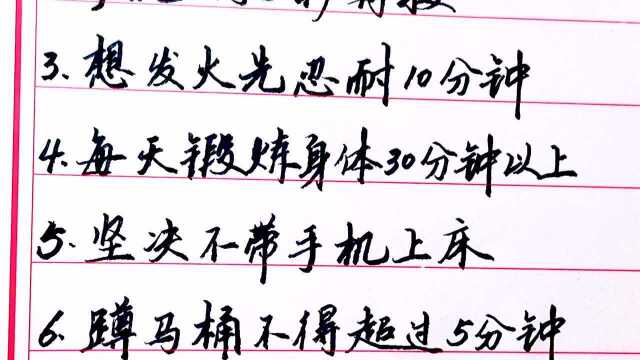 3. 想发火先忍耐10分钟
4. 每天锻炼身体30分钟以上
5. 坚决不带手机上床
6. 蹲马桶不得超过5分钟